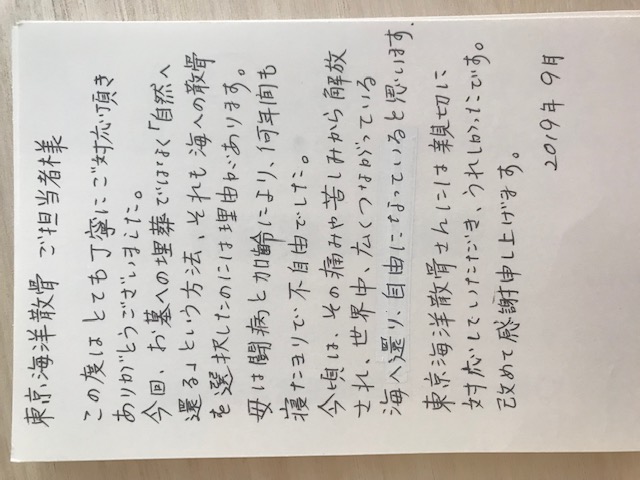 東京海洋散骨 ご担当者様
この度はとても丁寧にご対応頂き
ありがとうございました。
今回、お墓への埋葬ではなく「自然へ
還る」という方法、それも海への散骨
を選択したのには理由があります。
母は闘病と加齢により、何年間も
寝たきりで不自由でした。
今頃は、その痛みや苦しみから解放
され、世界中、広くつながっている
海へ還り、自由になっていると思います
東京海洋散骨さんには親切に
対応していただき、うれしかったです。
改めて感謝申し上げます。
2019年 9月